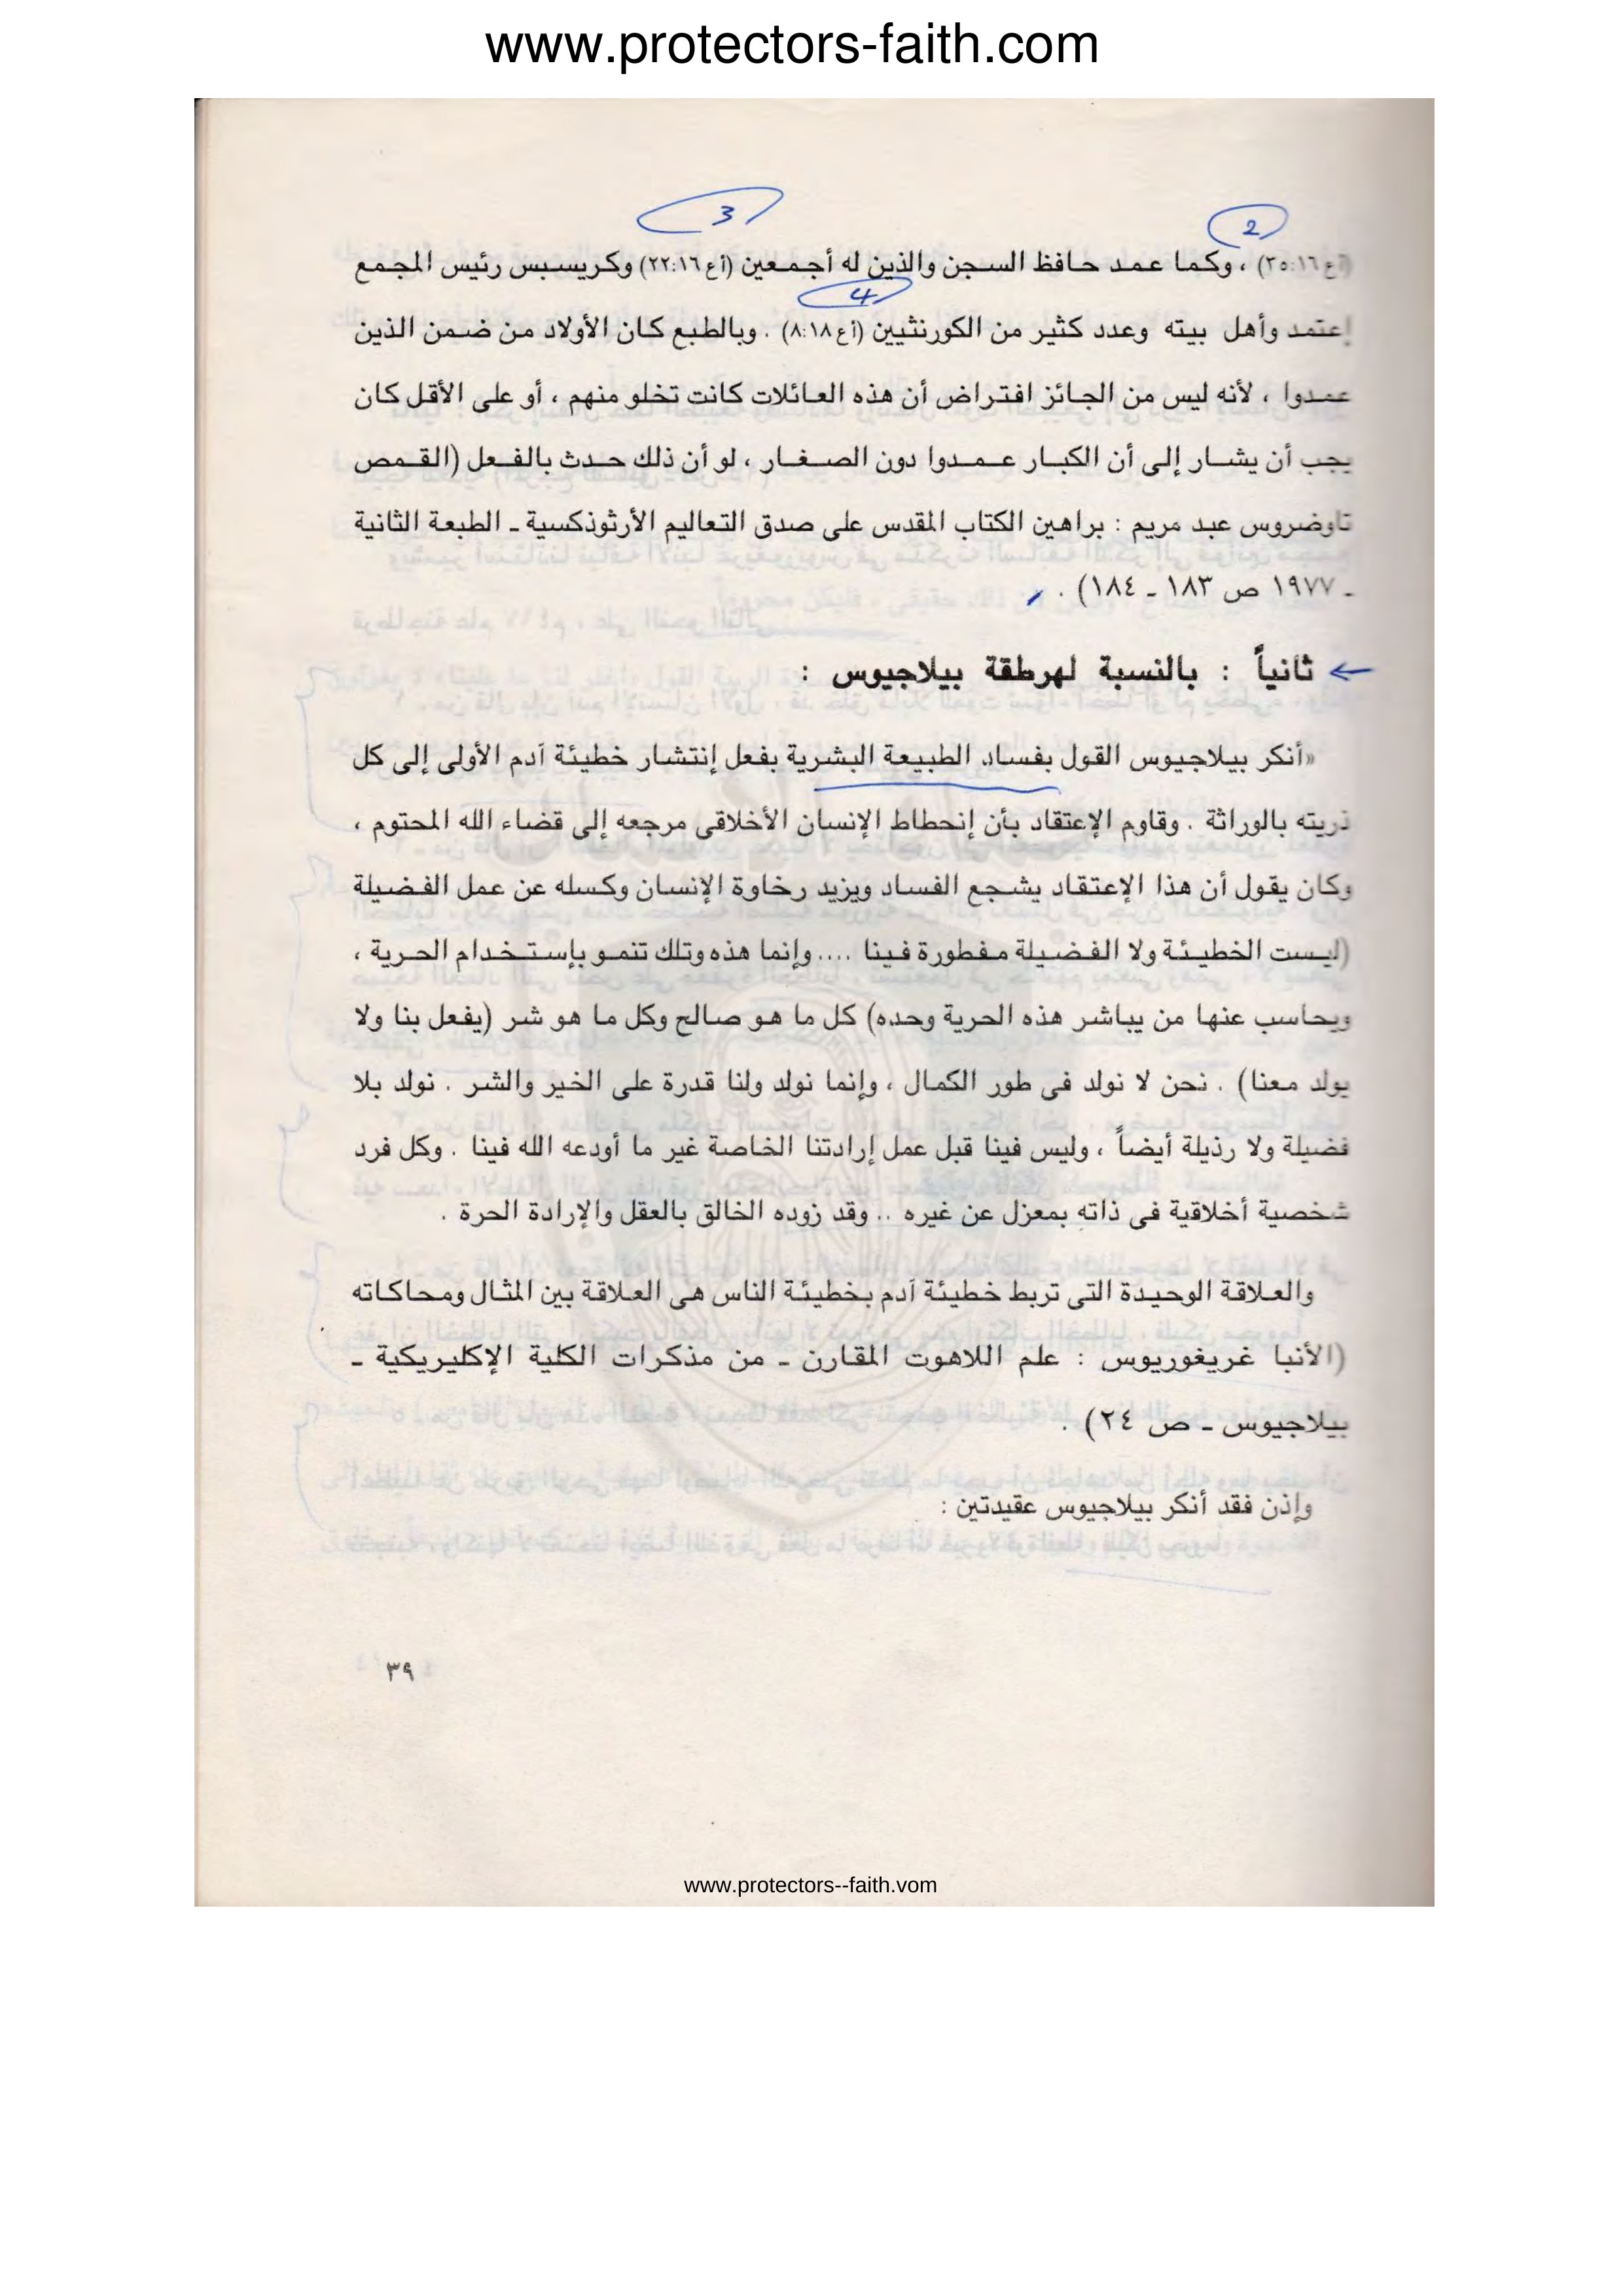 www.protectors-faith.com
3
2
(أع ١٦:٢٥) ، وكما عمد حافظ السجن والذين له أجمعين (أع ٢٢:١٦) وكريسبس رئيس المجمع
4
إعتمد وأهل بيته وعدد كثير من الكورنثيين (أع ٨:١٨) . وبالطبع كان الأولاد من ضمن الذين
عمدوا ، لأنه ليس من الجائز افتراض أن هذه العائلات كانت تخلو منهم ، أو على الأقل كان
يجب أن يشار إلى أن الكبار عمدوا دون الصغار ، لو أن ذلك حدث بالفعل (القمص
تاوضروس عبد مريم : براهين الكتاب المقدس على صدق التعاليم الأرثوذكسية ـ الطبعة الثانية
ـ ١٩٧٧ ص ١٨٣ ـ ١٨٤) .
← ثانياً : بالنسبة لهرطقة بيلاجيوس :
«أنكر بيلاجيوس القول بفساد الطبيعة البشرية بفعل إنتشار خطيئة آدم الأولى إلى كل
ذريته بالوراثة . وقاوم الإعتقاد بأن إنحطاط الإنسان الأخلاقى مرجعه إلى قضاء الله المحتوم ،
وكان يقول أن هذا الإعتقاد يشجع الفساد ويزيد رخاوة الإنسان وكسله عن عمل الفضيلة
(ليست الخطيئة ولا الفضيلة مفطورة فينا .... وإنما هذه وتلك تنمو بإستخدام الحرية ،
ويحاسب عنها من يباشر هذه الحرية وحده) كل ما هو صالح وكل ما هو شر (يفعل بنا ولا
يولد معنا) . نحن لا نولد فى طور الكمال ، وإنما نولد ولنا قدرة على الخير والشر . نولد بلا
فضيلة ولا رذيلة أيضاً ، وليس فينا قبل عمل إرادتنا الخاصة غير ما أودعه الله فينا . وكل فرد
شخصية أخلاقية فى ذاته بمعزل عن غيره .. وقد زوده الخالق بالعقل والإرادة الحرة .
والعلاقة الوحيدة التى تربط خطيئة آدم بخطيئة الناس هى العلاقة بين المثال ومحاكاته
(الأنبا غريغوريوس : علم اللاهوت المقارن ـ من مذكرات الكلية الإكليريكية ـ
بيلاجيوس ـ ص ٢٤) .
وإذن فقد أنكر بيلاجيوس عقيدتين :
٣٩
www.protectors--faith.vom